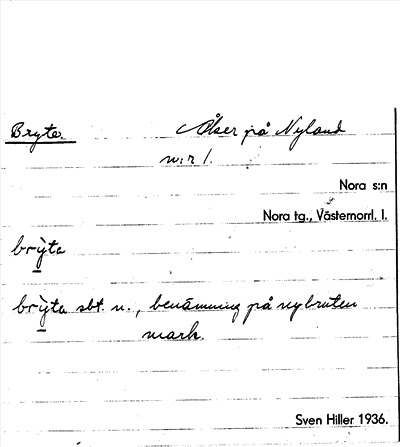 Bryta. Åker på Nyland
n:r 1.
Nora s:n
Nora tg., Västernorrl. l.
brỳta
brỳta sbt. n., benämning på nybruten
mark.
Sven Hiller 1936.